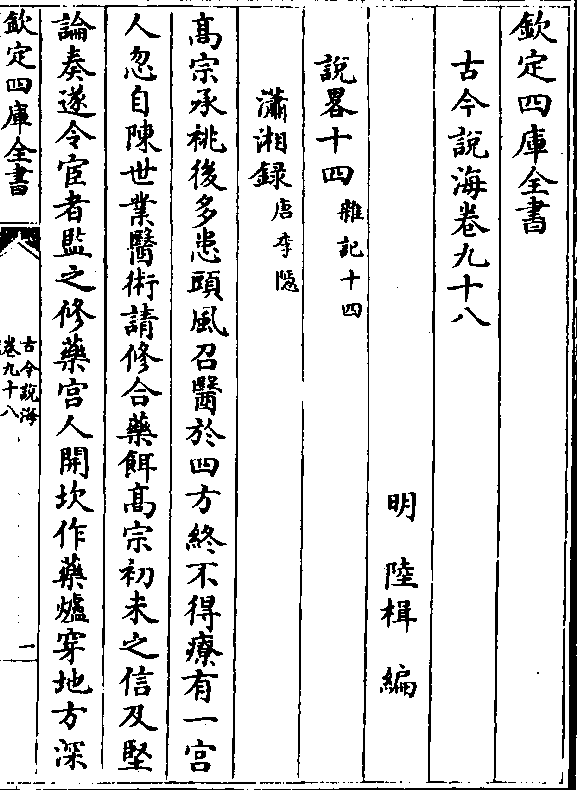 欽定四庫全書
古今說海卷九十八
明 陸楫 編
說畧十四 雜記十四
瀟湘録 唐李隱
髙宗承祧後多患頭風召醫於四方終不得療有一宫
人忽自陳世業醫術請修合藥餌髙宗初未之信及堅
論奏遂令宦者監之修藥宫人開坎作藥爐穿地方深
欽定四庫全書
古今說海
卷九十八
一